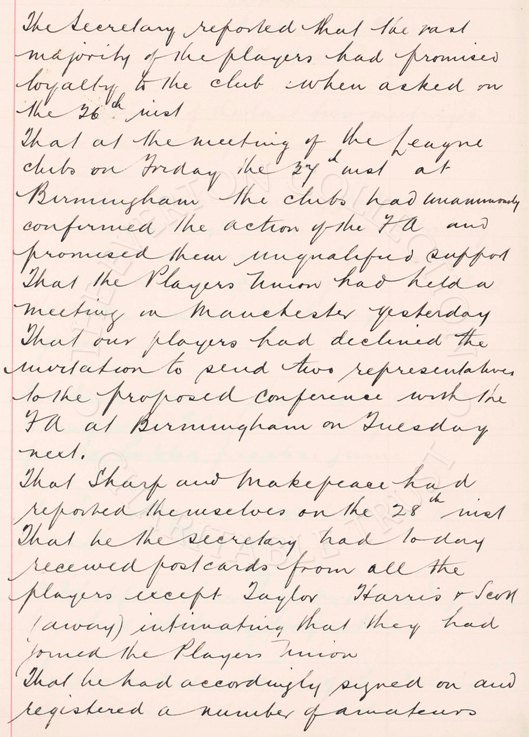 The Secretary reported that the vast
majority of the players had promised
loyalty to the club when asked on
the 26th inst
That at the meeting of the League
clubs on Friday the 27th inst at
Birmingham the clubs had unanimously
confirmed the action of the FA and
promised them unqualified support
That the Players Union had held a
meeting in Manchester yesterday
That our players had declined the
invitation to send two representatives
to the proposed conference with the
FA at Birmingham on Tuesday
next.
That Sharp and Makepeace had
reported themselves on the 28th inst
That he the secretary had to-day
received postcards from all the
players except Taylor Harris & Scott
(away) intimating that they had
joined the Players Union
That he had accordingly signed on and
registered a number of amateurs
THE EVERTON COLLECTION
CHARITABLE TRUST